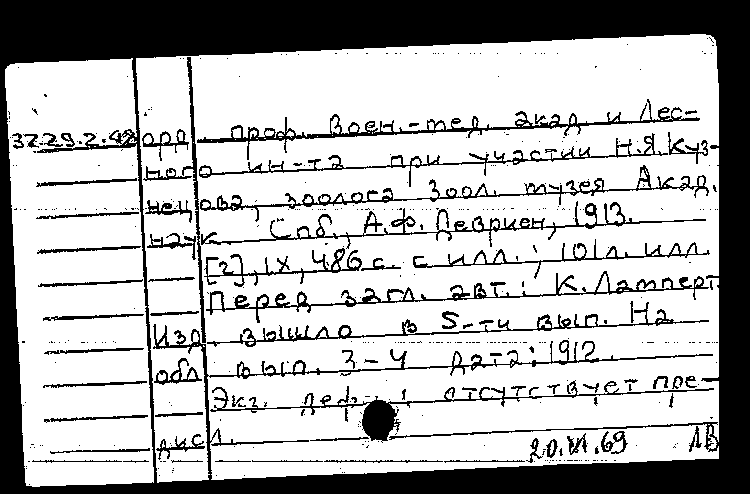 37.29.2.48 орд. проф. Воен.-мед. акад. и Лес-
ного ин-та при участии Н.Я.Куз-
нецова, зоолога Зоол. музея Акад.
наук. Спб., А.Ф. Девриен, 1913.
[2], IX, 486 с. с илл.; 101 л. илл.
Перед загл. авт.: К.Ламперт.
Изд. вышло в 5-ти вып. На
обл. вып. 3-4 дата: 1912.
Экз. деф.: отсутствует пре-
дисл.
20.VI.69 ЛВ